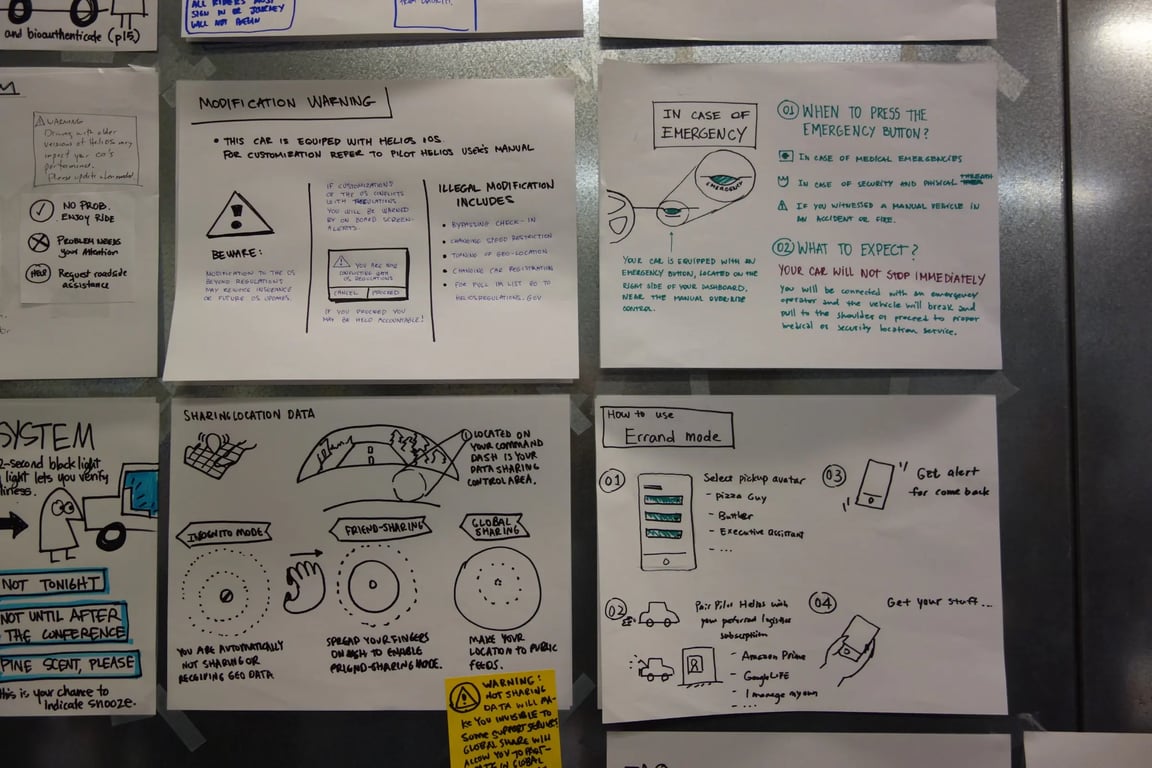 ALL RIDERS MUST
SIGN IN OR JOURNEY
WILL NOT BEGIN
and bioauthenticate (p15)
M
WARNING
Driving with older
versions of Helios may
impact your car's
performance.
Please update when needed.
NO PROB.
ENJOY RIDE
PROBLEM NEEDS
your Attention
HELP
Request roadside
assistance
MODIFICATION WARNING
• THIS CAR IS EQUIPED WITH HELIOS IOS.
FOR CUSTOMIZATION REFER TO PILOT HELIOS USER'S MANUAL
BEWARE:
MODIFICATION TO THE OS
BEYOND REGULATIONS
MAY REVOKE INSURANCE
OR FUTURE OS UPDATES.
IF CUSTOMIZATIONS
OF THE OS CONFLICTS
WITH REGULATIONS
YOU WILL BE WARNED
BY ON BOARD SCREEN-
ALERTS.
YOU ARE NOW
CONFLICTING WITH
OS REGULATIONS
CANCEL PROCEED
IF YOU PROCEED YOU
MAY BE HELD ACCOUNTABLE!
ILLEGAL MODIFICATION
INCLUDES
• BYPASSING CHECK-IN
• CHANGING SPEED RESTRICTION
• TUNING OF GEO-LOCATION
• CHANGING CAR REGISTRATION
• FOR FULL LIST GO TO
HELIOSREGULATIONS.GOV
IN CASE OF
EMERGENCY
EMERGENCY
YOUR CAR IS EQUIPPED WITH AN
EMERGENCY BUTTON, LOCATED ON THE
RIGHT SIDE OF YOUR DASHBOARD,
NEAR THE MANUAL OVERRIDE
CONTROL.
01 WHEN TO PRESS THE
EMERGENCY BUTTON?
IN CASE OF MEDICAL EMERGENCIES
IN CASE OF SECURITY AND PHYSICAL THREATH
IF YOU WITNESSED A MANUAL VEHICLE IN
AN ACCIDENT OR FIRE.
02 WHAT TO EXPECT?
YOUR CAR WILL NOT STOP IMMEDIATELY
You will be connected with an emergency
operator and the vehicle will break and
pull to the shoulder or proceed to proper
medical or security location service.
SYSTEM
2-second blacklight
light lets you verify
NOT TONIGHT
NOT UNTIL AFTER
THE CONFERENCE
PINE SCENT, PLEASE
This is your chance to
indicate snooze.
SHARING LOCATION DATA
① LOCATED ON
YOUR COMMAND
DASH IS YOUR
DATA SHARING
CONTROL AREA.
INCOGNITO MODE
FRIEND-SHARING
GLOBAL
SHARING
YOU ARE AUTOMATICALLY
NOT SHARING OR
RECEIVING GEO DATA
SPREAD YOUR FINGERS
ON DASH TO ENABLE
FRIEND-SHARING MODE.
MAKE YOUR
LOCATION TO PUBLIC
FEEDS.
WARNING:
NOT SHARING
DATA WILL MA-
KE YOU INVISIBLE TO
SOME SUPPORT SERVICES
GLOBAL SHARE WILL
ALLOW YOU TO PART-
ATE IN GLOBAL
How to use
Errand mode
01
Select pickup avatar
- Pizza Guy
- Buttler
- Executive assistant
- ...
02
Pair Pilot Helios with
your preferred logistics
subscription
- Amazon Prime
- Google LIFE
- I manage my own
- ...
03
Get alert
for come back
04
Get your stuff...